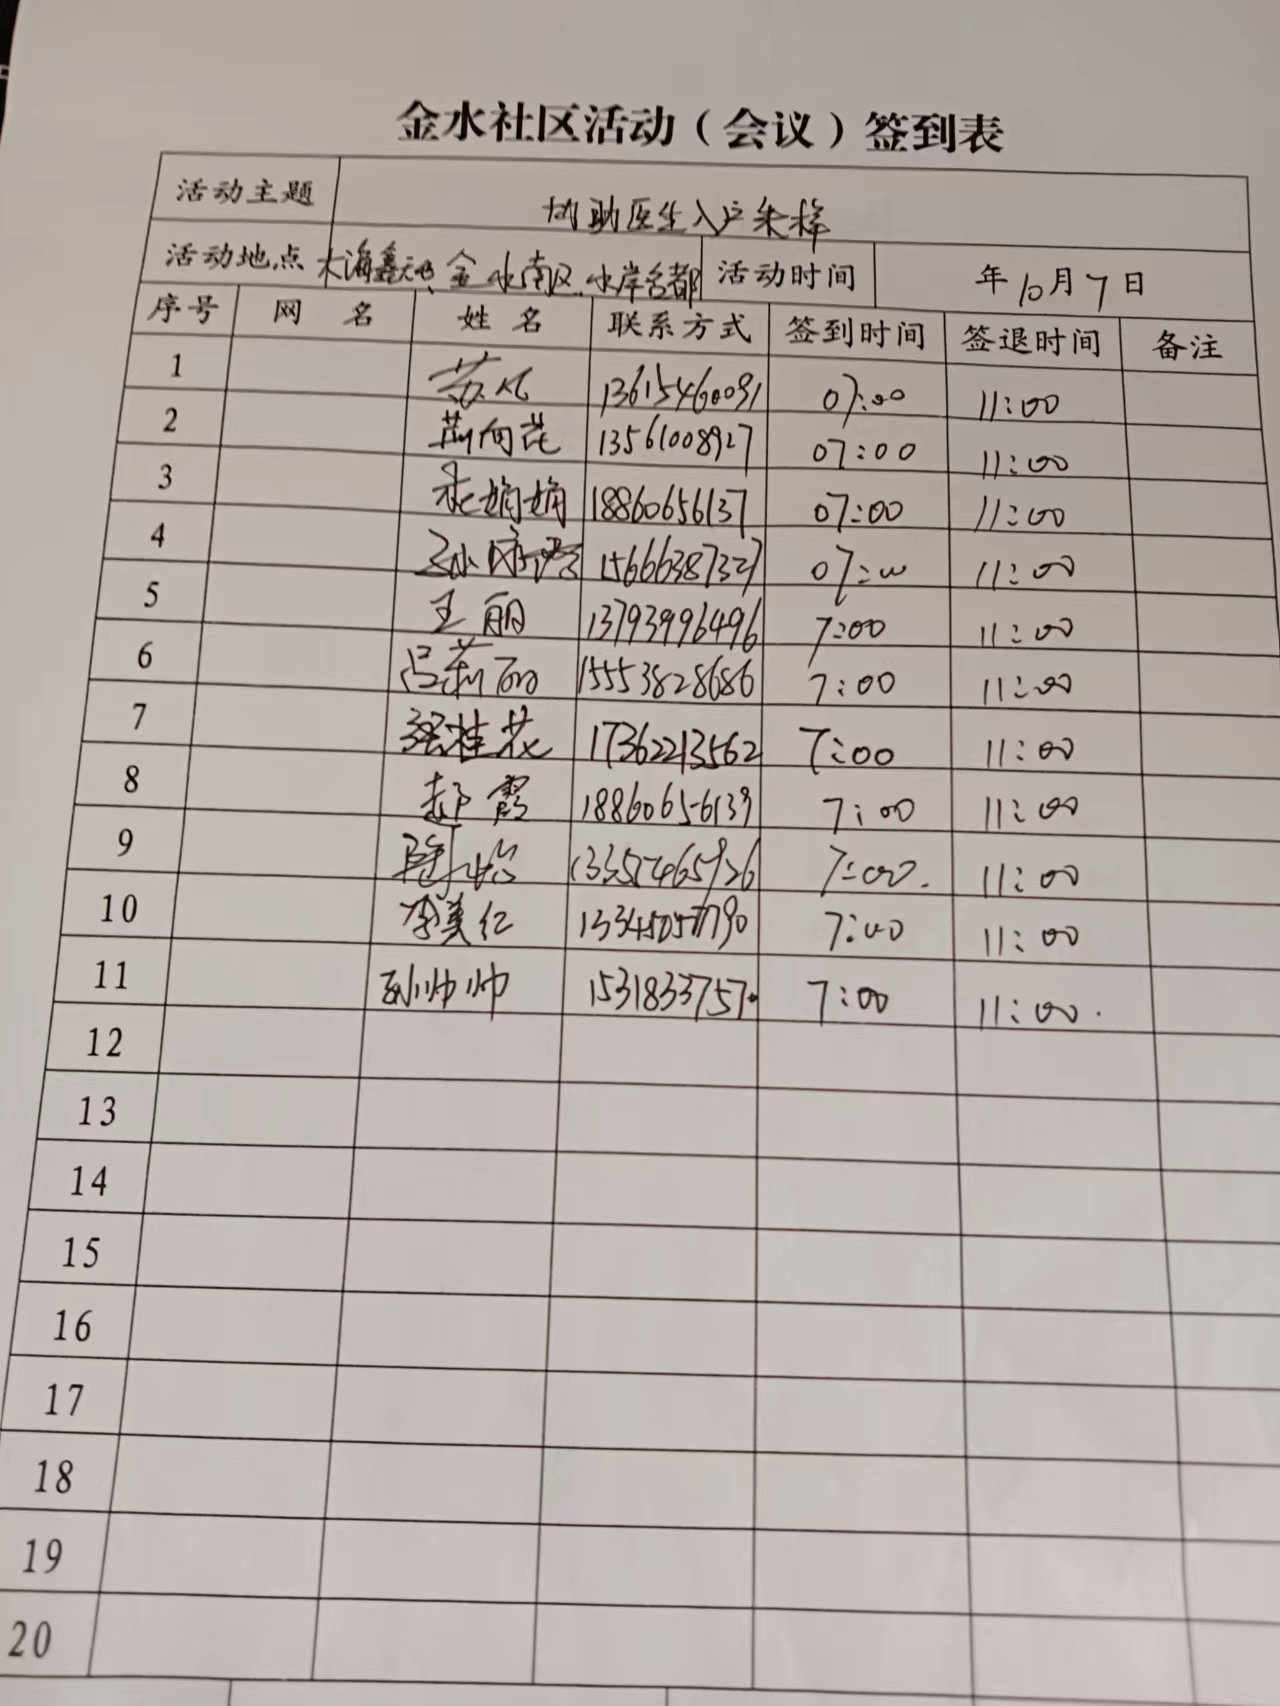 金水社区活动（会议）签到表
活动主题 协助医生入户采样
活动地点 金水南区、水岸名都 活动时间 年10月7日
序号 网名 姓名 联系方式 签到时间 签退时间 备注
1 13615460091 07:00 11:00
2 13561008927 07:00 11:00
3 娟娟 18860656137 07:00 11:00
4 15666387327 07:00 11:00
5 王丽 13793996496 7:00 11:00
6 吕莉丽 15553828686 7:00 11:00
7 张桂花 17362213562 7:00 11:00
8 赵霞 18860656139 7:00 11:00
9 7:00. 11:00
10 李美红 7:00 11:00
11 孙帅帅 15318337570 7:00 11:00.
12
13
14
15
16
17
18
19
20